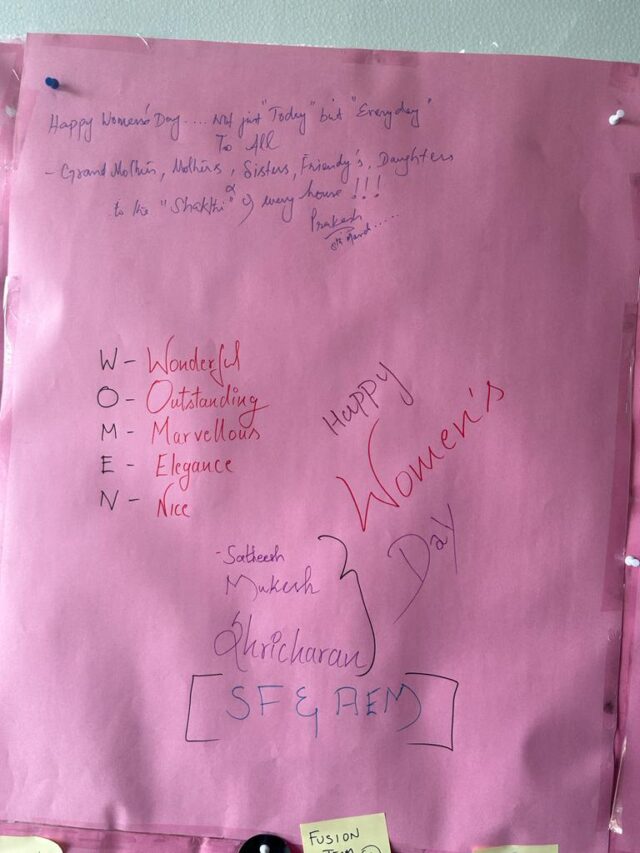 Happy Women's Day .... Not just "Today" but "Everyday"
To All
- Grand Mothers, Mothers, Sisters, Friendy's, Daughters
to the "Shakthi" of every house !!!
Prakash
W - Wonderful
O - Outstanding
M - Marvellous
E - Elegance
N - Nice
Happy
Women's
Day
- Satheesh
Mukesh
Shricharan
[SF & AEM]
FUSION
TEAM